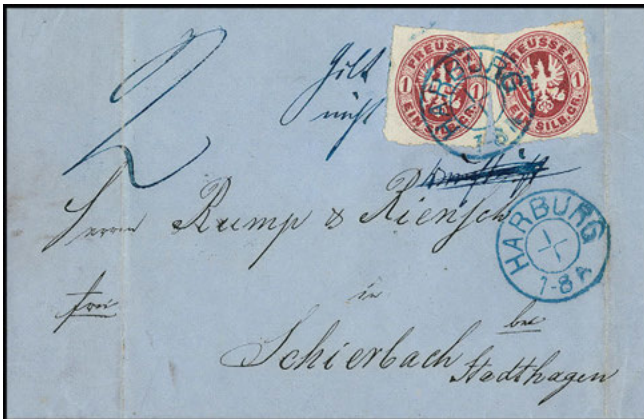 2
Gilt
nicht
PREUSSEN
1 1
EIN SILB. GR.
PREUSSEN
1
EIN SILB. GR.
HARBURG
7-8
Herrn Rump & Riensch
HARBURG
7-8 A
frei
in
Schierbach bei
Stadthagen